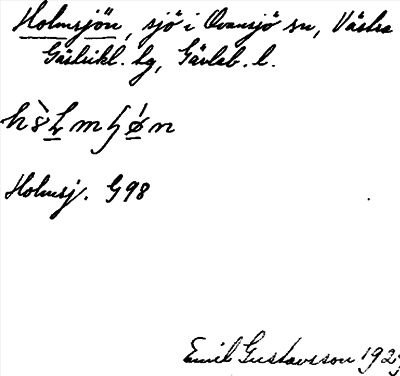 Holmsjön, sjö i Ovansjö sn, Västra
Gästrikl. hg, Gävleb. l.
Holmsj. G98
Emil Gustavsson